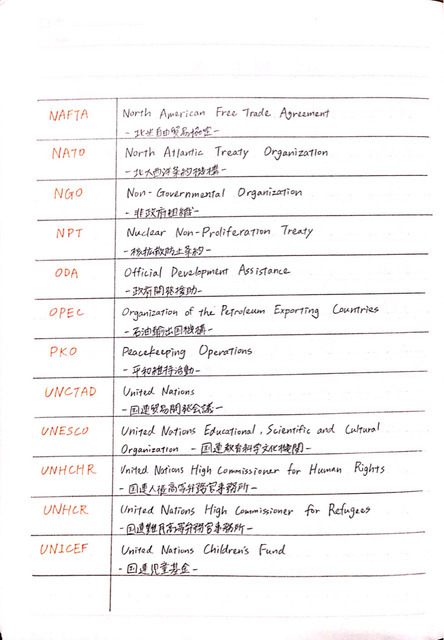 NAFTA North American Free Trade Agreement
- 北米自由貿易協定 -
NATO North Atlantic Treaty Organization
- 北大西洋条約機構 -
NGO Non-Governmental Organization
- 非政府組織 -
NPT Nuclear Non-Proliferation Treaty
- 核拡散防止条約 -
ODA Official Development Assistance
- 政府開発援助 -
OPEC Organization of the Petroleum Exporting Countries
- 石油輸出国機構 -
PKO Peacekeeping Operations
- 平和維持活動 -
UNCTAD United Nations
- 国連貿易開発会議 -
UNESCO United Nations Educational, Scientific and Cultural
Organization - 国連教育科学文化機関 -
UNHCHR United Nations High Commissioner for Human Rights
- 国連人権高等弁務官事務所 -
UNHCR United Nations High Commissioner for Refugees
- 国連難民高等弁務官事務所 -
UNICEF United Nations Children's Fund
- 国連児童基金 -